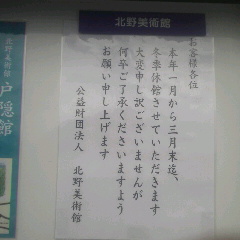 北野美術館
お客様各位
本年一月から三月末迄、
冬季休館させていただきます
大変申し訳ございませんが
何卒ご了承くださいますよう
お願い申し上げます
公益財団法人 北野美術館
北野美術館
戸隠館